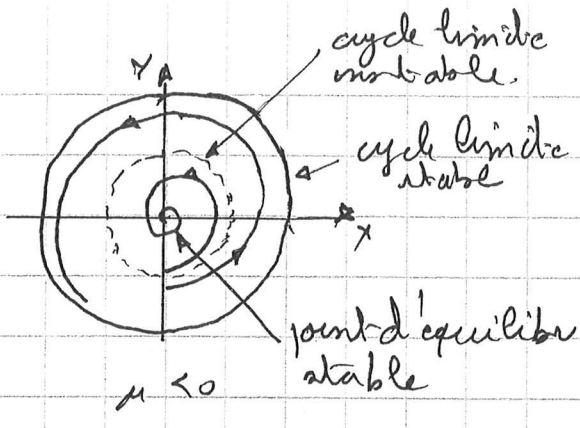 cycle limite
instable.
Y
cycle limite
stable
X
point d'équilibre
stable
μ <0